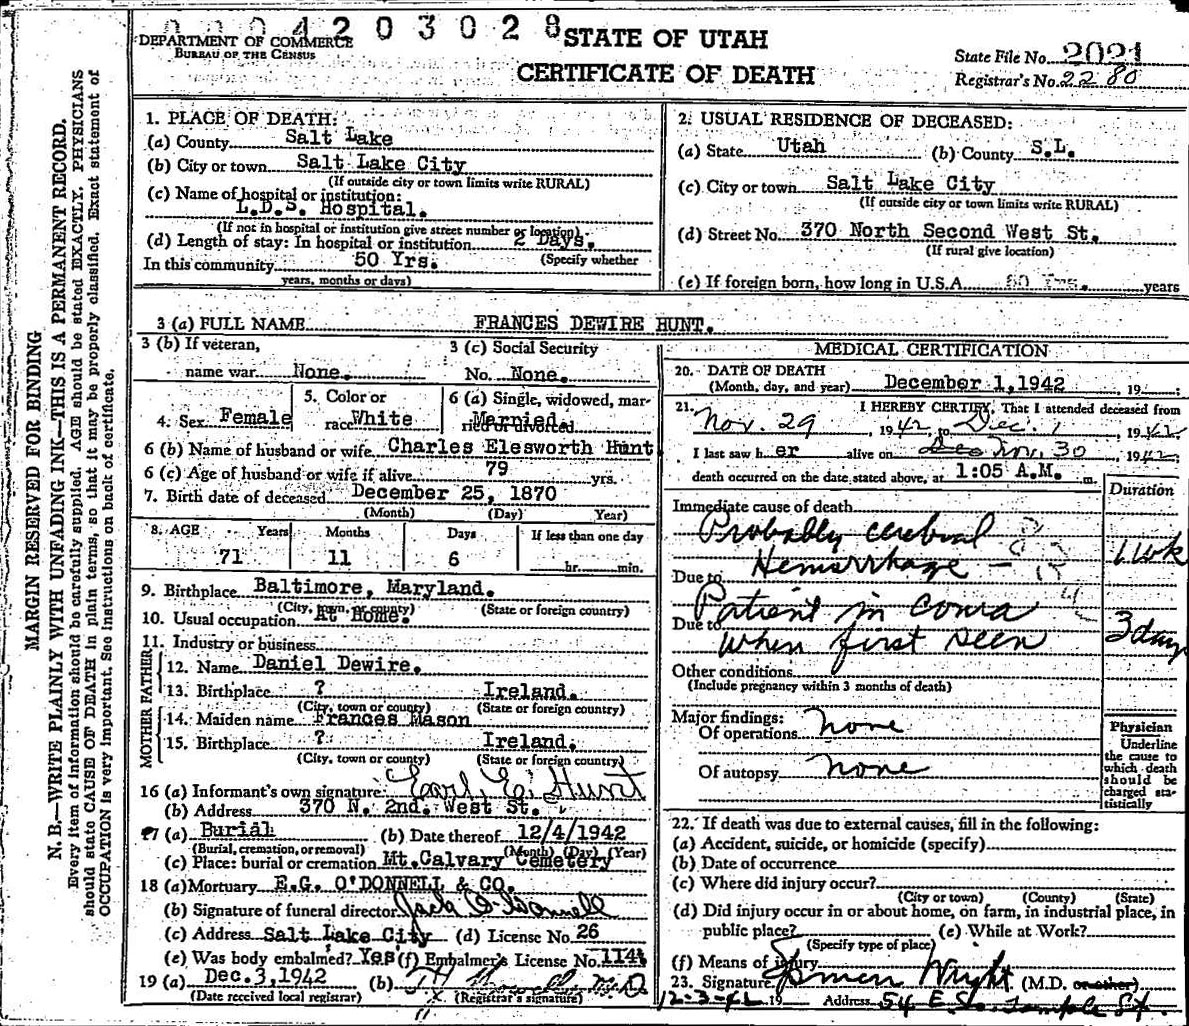 0004203028
DEPARTMENT OF COMMERCE
BUREAU OF THE CENSUS
STATE OF UTAH
CERTIFICATE OF DEATH
State File No. 2021
Registrar's No. 2280
MARGIN RESERVED FOR BINDING
N. B.—WRITE PLAINLY WITH UNFADING INK—THIS IS A PERMANENT RECORD.
Every item of information should be carefully supplied. AGE should be stated EXACTLY. PHYSICIANS
should state CAUSE OF DEATH in plain terms, so that it may be properly classified. Exact statement of
OCCUPATION is very important. See instructions on back of certificate.
1. PLACE OF DEATH:
(a) County Salt Lake
(b) City or town Salt Lake City
(If outside city or town limits write RURAL)
(c) Name of hospital or institution:
L.D.S. Hospital.
(If not in hospital or institution give street number or location)
(d) Length of stay: In hospital or institution 2 Days.
(Specify whether
In this community 50 Yrs.
years, months or days)
2. USUAL RESIDENCE OF DECEASED:
(a) State Utah (b) County S.L.
(c) City or town Salt Lake City
(If outside city or town limits write RURAL)
(d) Street No. 370 North Second West St.
(If rural give location)
(e) If foreign born, how long in U.S.A. years
3 (a) FULL NAME FRANCES DEWIRE HUNT.
3 (b) If veteran,
name war None.
3 (c) Social Security
No. None.
4. Sex Female
5. Color or
race White
6 (a) Single, widowed, mar-
ried or divorced Married
6 (b) Name of husband or wife Charles Elesworth Hunt
6 (c) Age of husband or wife if alive 79 yrs.
7. Birth date of deceased December 25, 1870
(Month) (Day) Year)
8. AGE Years Months Days If less than one day
71 11 6 hr. min.
9. Birthplace Baltimore, Maryland.
(City, town, or county) (State or foreign country)
10. Usual occupation At Home.
11. Industry or business
FATHER
12. Name Daniel Dewire.
13. Birthplace ? Ireland.
(City, town or county) (State or foreign country)
MOTHER
14. Maiden name Frances Mason
15. Birthplace ? Ireland.
(City, town or county) (State or foreign country)
16 (a) Informant's own signature Earl E. Hunt
(b) Address 370 N. 2nd. West St.
17 (a) Burial (b) Date thereof 12/4/1942
(Burial, cremation, or removal) (Month) (Day) (Year)
(c) Place: burial or cremation Mt.Calvary Cemetery
18 (a) Mortuary E.G. O'DONNELL & CO.
(b) Signature of funeral director Jack O'Donnell
(c) Address Salt Lake City (d) License No. 26
(e) Was body embalmed? Yes (f) Embalmer's License No. 114
19 (a) Dec.3,1942 (b) M.D.
(Date received local registrar) (Registrar's signature)
MEDICAL CERTIFICATION
20. DATE OF DEATH
(Month, day, and year) December 1,1942, 19
21. I HEREBY CERTIFY, That I attended deceased from
Nov. 29, 1942 to Dec. 1, 1942
I last saw h er alive on Nov. 30 1942;
death occurred on the date stated above, at 1:05 A.M. m.
Duration
Immediate cause of death
Probably cerebral
Hemorrhage 1 wk
Due to
Patient in coma
Due to
when first seen 3 days
Other conditions
(Include pregnancy within 3 months of death)
Major findings:
Of operations none
Of autopsy none
Physician
Underline
the cause to
which death
should be
charged sta-
tistically
22. If death was due to external causes, fill in the following:
(a) Accident, suicide, or homicide (specify)
(b) Date of occurrence
(c) Where did injury occur?
(City or town) (County) (State)
(d) Did injury occur in or about home, on farm, in industrial place, in
public place? (e) While at Work?
(Specify type of place)
(f) Means of injury
23. Signature Spencer Wright (M.D. or other)
12-3-42 19 Address 54 E So. Temple St.